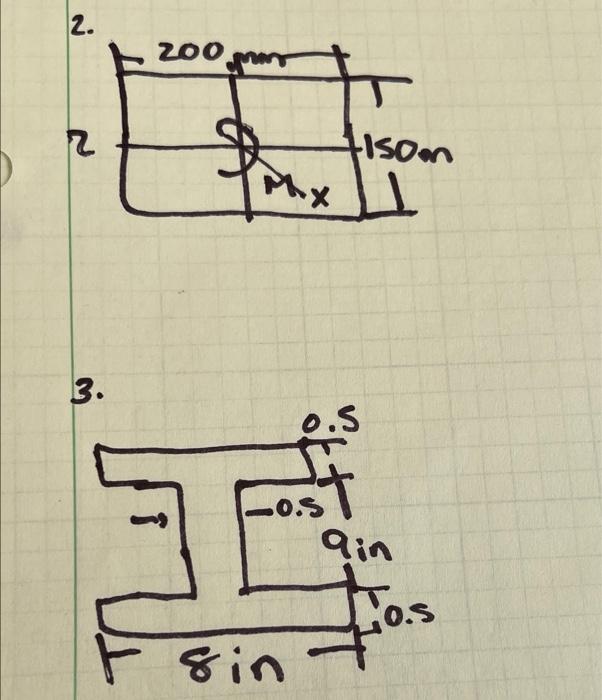 2.
200 mm
z
150m
M x
3.
0.5
0.5
9in
0.5
8in